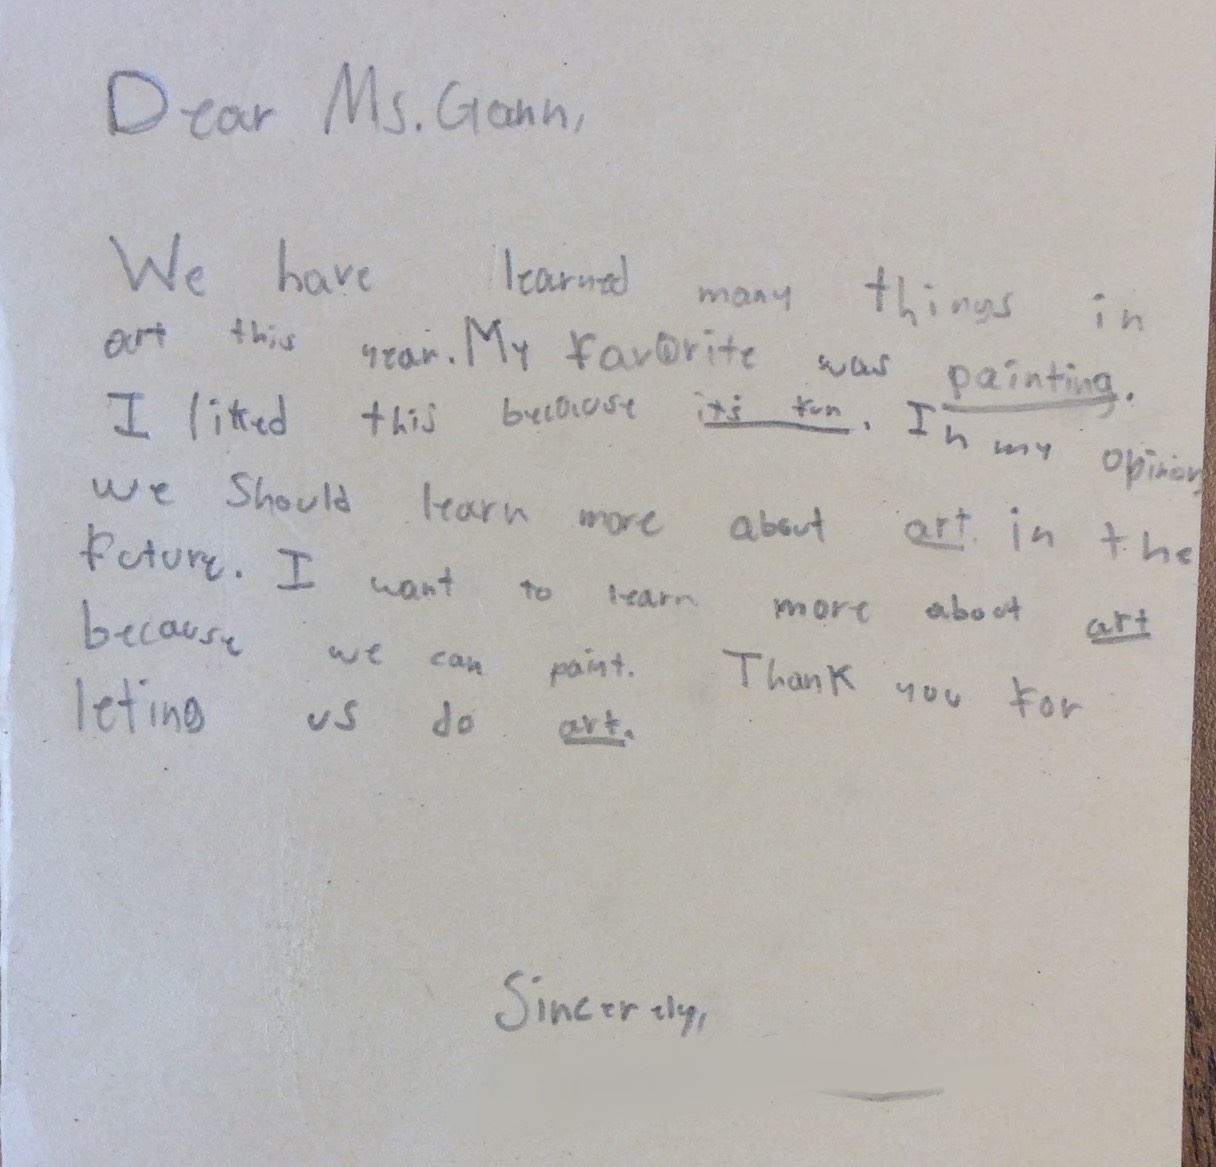 Dear Ms. Gann,
We have learned many things in
art this year. My favorite was painting.
I liked this because its fun. In my opinion
we should learn more about art. in the
future. I want to learn more about art
because we can paint. Thank you for
leting us do art.
Sincerely,